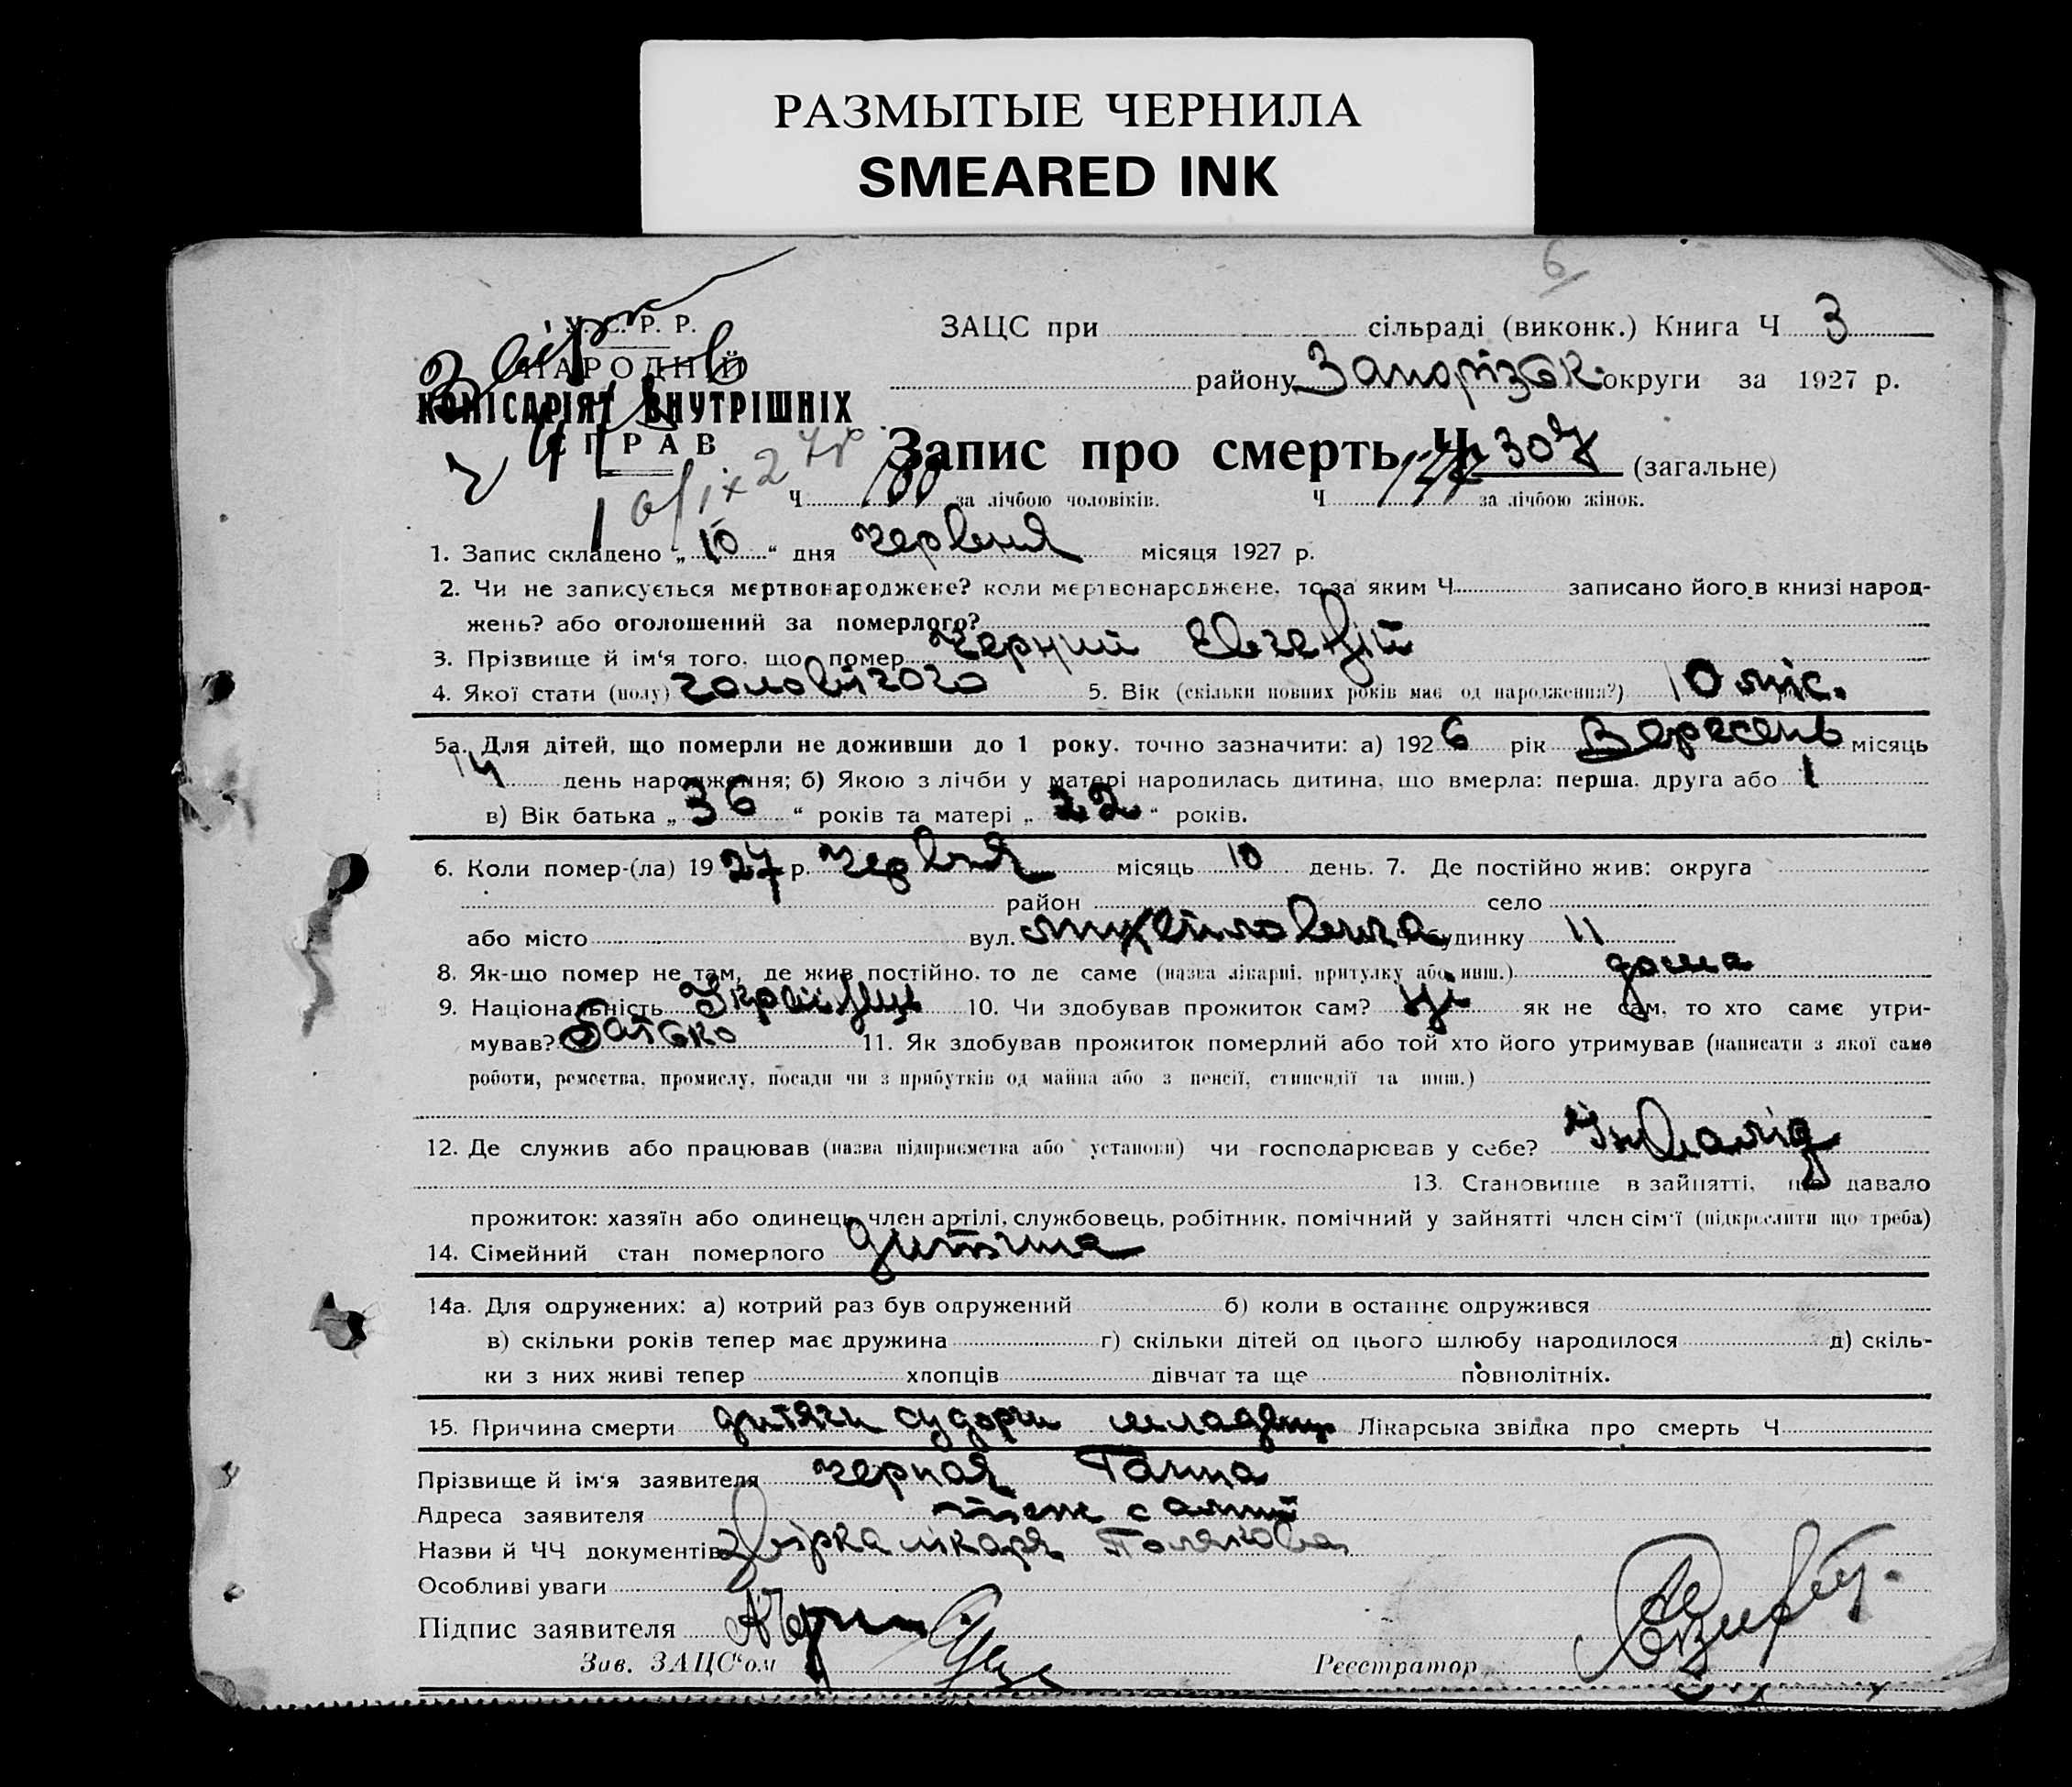 РАЗМЫТЫЕ ЧЕРНИЛА
SMEARED INK
6
У. С. Р. Р.
ЗАЦС при сільраді (виконк.) Книга Ч 3
НАРОДНИЙ
району Запорізьк. округи за 1927 р.
КОМІСАРІЯТ ВНУТРІШНІХ
СПРАВ
Запис про смерть Ч 307 (загальне)
Ч за лічбою чоловіків. Ч за лічбою жінок.
1. Запис складено „ 10 “ дня червня місяця 1927 р.
2. Чи не записується мертвонароджене? коли мертвонароджене, то за яким Ч записано його в книзі народ-
жень? або оголошений за померлого?
3. Прізвище й ім‘я того, що помер Черний Евгеній
4. Якої стати (полу) чоловічого 5. Вік (скільки повних років має од народження?) 10 міс.
5а. Для дітей, що померли не доживши до 1 року, точно зазначити: а) 1926 рік Вересень місяць
14 день народження; б) Якою з лічби у матері народилась дитина, що вмерла: перша, друга або 1
в) Вік батька „ 36 “ років та матері „ 22 “ років.
6. Коли помер-(ла) 1927 р. червня місяць 10 день. 7. Де постійно жив: округа
район село
або місто вул. будинку 11
8. Як-що помер не там, де жив постійно, то де саме (назва лікарні, притулку або инш.) дома
9. Національність Українець 10. Чи здобував прожиток сам? Ні як не сам, то хто саме утри-
мував? Батько 11. Як здобував прожиток померлий або той хто його утримував (написати з якої саме
роботи, ремества, промислу, посади чи з прибутків од майна або з пенсії, стипендії та инш.)
12. Де служив або працював (назва підприємства або установи) чи господарював у себе? Інвалід
13. Становище в зайнятті, що давало
прожиток: хазяїн або одинець, член артілі, службовець, робітник, помічний у зайнятті член сім‘ї (підкреслити що треба)
14. Сімейний стан померлого дитина
14а. Для одружених: а) котрий раз був одружений б) коли в останнє одружився
в) скільки років тепер має дружина г) скільки дітей од цього шлюбу народилося д) скіль-
ки з них живі тепер хлопців дівчат та ще повнолітніх.
15. Причина смерти дитячи судорги младенц Лікарська звідка про смерть Ч
Прізвище й ім‘я заявителя Черная Ганна
Адреса заявителя теж самий
Назви й ЧЧ документів Довірка лікаря Полякова
Особливі уваги
Підпис заявителя
Зав. ЗАЦС“ом Реєстратор